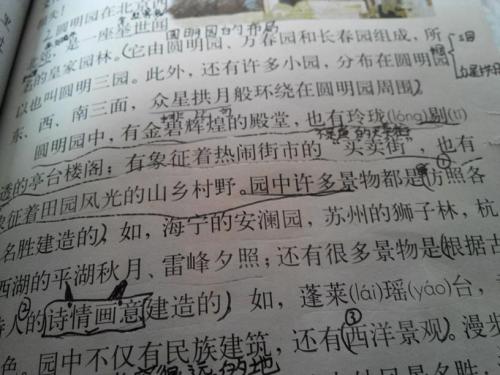 2圆明园在北京西
圆明园的布局
北郊，是一座举世闻
名的皇家园林。它由圆明园、万春园和长春园组成，所
以也叫圆明三园。此外，还有许多小园，分布在圆明园
东、西、南三面，众星拱月般环绕在圆明园周围。
圆明园中，有金碧辉煌的殿堂，也有玲珑(lóng)剔(tī)
透的亭台楼阁；有象征着热闹街市的“买卖街”，也有
象征着田园风光的山乡村野。园中许多景物都是仿照各
地名胜建造的，如，海宁的安澜园，苏州的狮子林，杭
西湖的平湖秋月、雷峰夕照；还有很多景物是根据古
诗人的诗情画意建造的，如，蓬莱(lái)瑶(yáo)台，
色。园中不仅有民族建筑，还有西洋景观。漫步